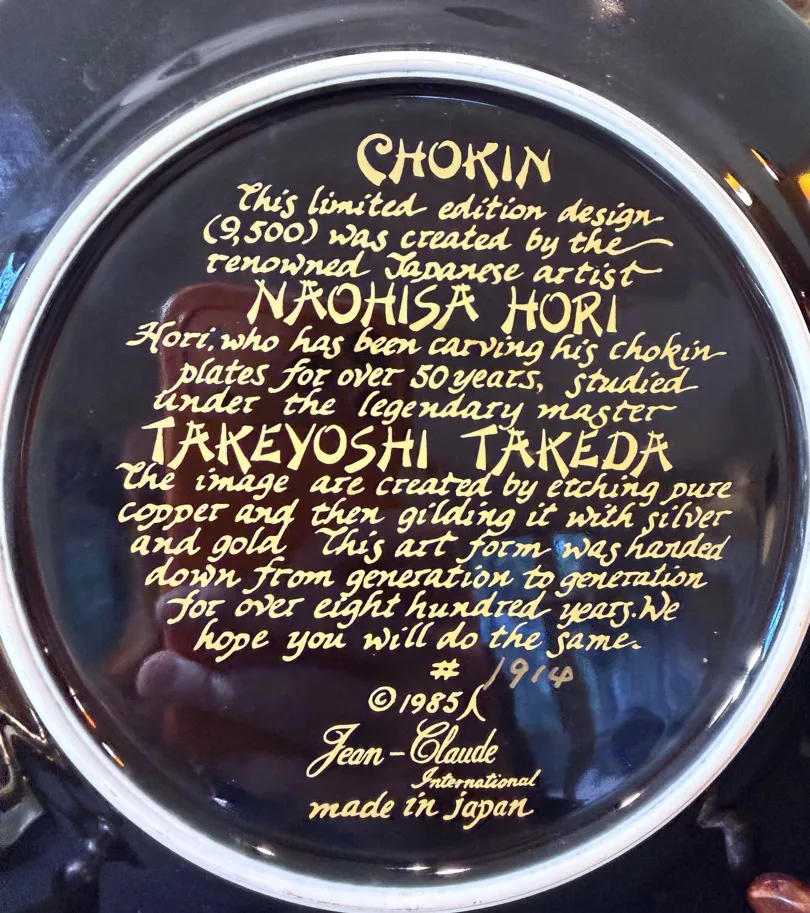 CHOKIN
This limited edition design
(9,500) was created by the
renowned Japanese artist
NAOHISA HORI
Hori, who has been carving his chokin
plates for over 50 years, studied
under the legendary master
TAKEYOSHI TAKEDA
The image are created by etching pure
copper and then gilding it with silver
and gold This art form was handed
down from generation to generation
for over eight hundred years. We
hope you will do the same.
# 1914
© 1985
Jean-Claude
International
made in japan